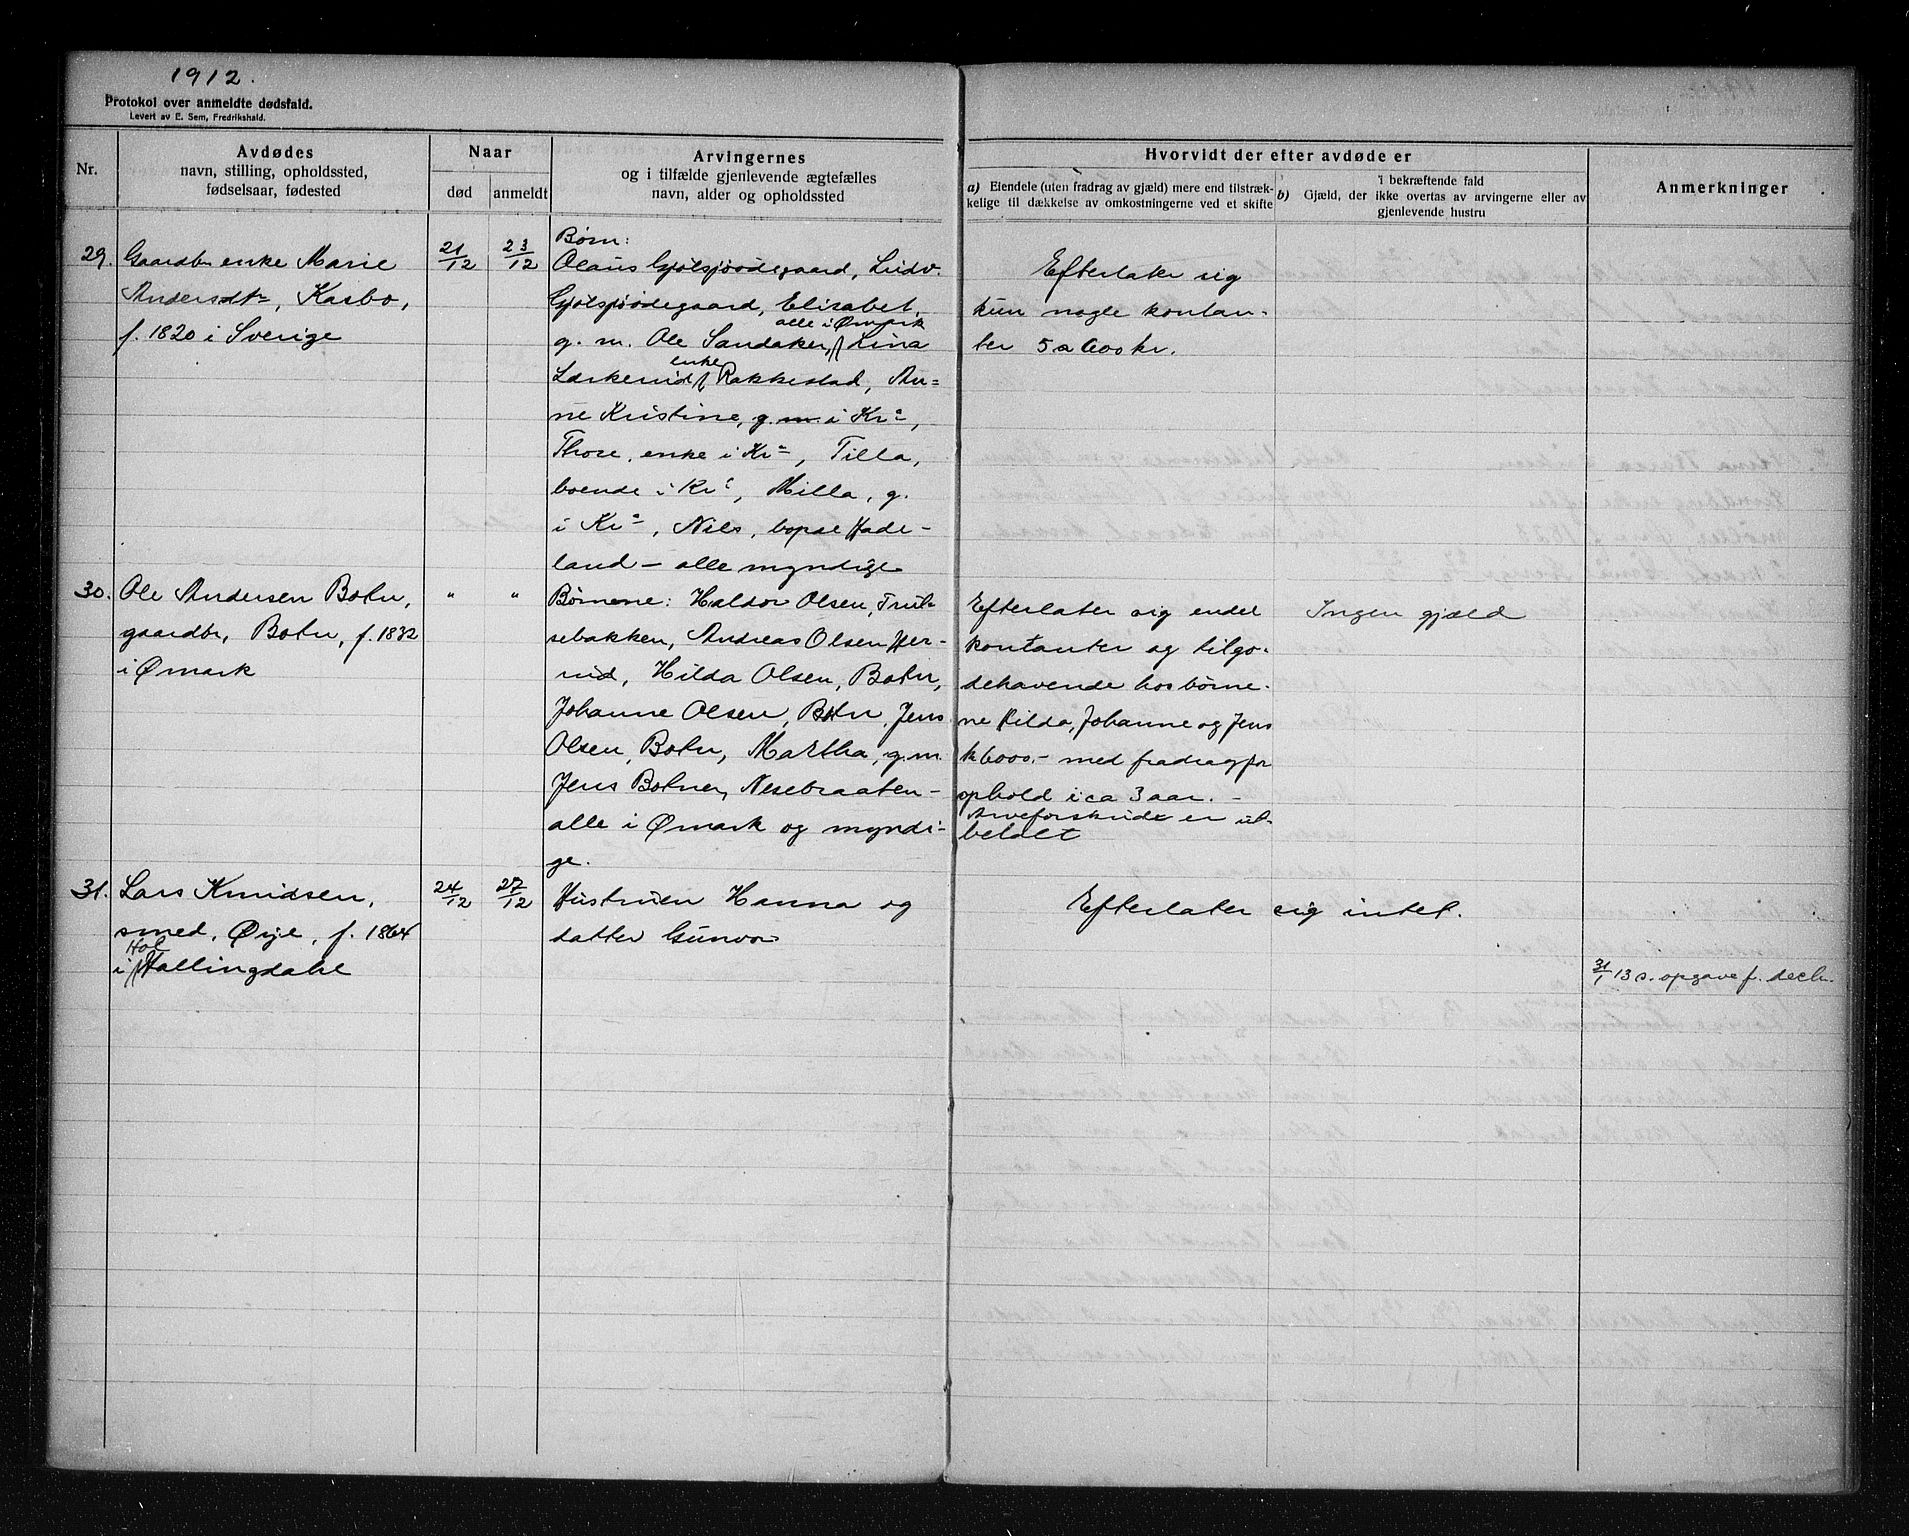 1912.
Protokol over anmeldte dødsfald.
Levert av E. Sem, Fredrikshald.
Nr.
Avdødes
navn, stilling, opholdssted,
fødselsaar, fødested
Naar
død
anmeldt
Arvingernes
og i tilfælde gjenlevende ægtefælles
navn, alder og opholdssted
Hvorvidt der efter avdøde er
a) Eiendele (uten fradrag av gjæld) mere end tilstræk-
kelige til dækkelse av omkostningerne ved et skifte
i bekræftende fald
b) Gjæld, der ikke overtas av arvingerne eller av
gjenlevende hustru
Anmerkninger
29. Gaardbr enke Marie
Andersdtr, Kasbo,
f. 1820 i Sverige
21/12
23/12
Børn:
Olaus Gjølsjøødegaard, Ludv.
Gjølsjøødegaard, Elisabet,
alle i Ømark
g. m. Ole Sandaker, Lina
enke
Lærkerud Rakkestad, An=
ne Kristine, g. m. i Kra,
Thore, enke i Kra, Tilla,
boende i Kra, Milla, g.
i Kra, Nils, bopæl Hade-
land – alle myndige
Efterlater sig
kun nogle kontan-
ter 5 a 600 kr.
30. Ole Andersen Botn,
gaardbr, Botn, f. 1832
i Ømark
"
"
Børnene: Haldor Olsen, Trul-
sebakken, Andreas Olsen Her-
rud, Hilda Olsen, Botn,
Johanne Olsen, Botn, Jens
Olsen, Botn, Martha, g. m.
Jens Botner, Nesebraaten –
alle i Ømark og myndi-
ge.
Efterlater sig endel
kontanter og tilgo-
dehavende hos børne-
ne Hilda, Johanne og Jens
k 6000.- med fradrag for
ophold i ca 3 aar. –
Arveforskudt er ut-
betalt
Ingen gjæld
31. Lars Knudsen,
smed, Ørje, f. 1864
Hol
i Hallingdahl
24/12
27/12
Hustruen Hanna og
datter Gunvor
Efterlater sig intet.
31/1 13 s. opgave f. decbr.